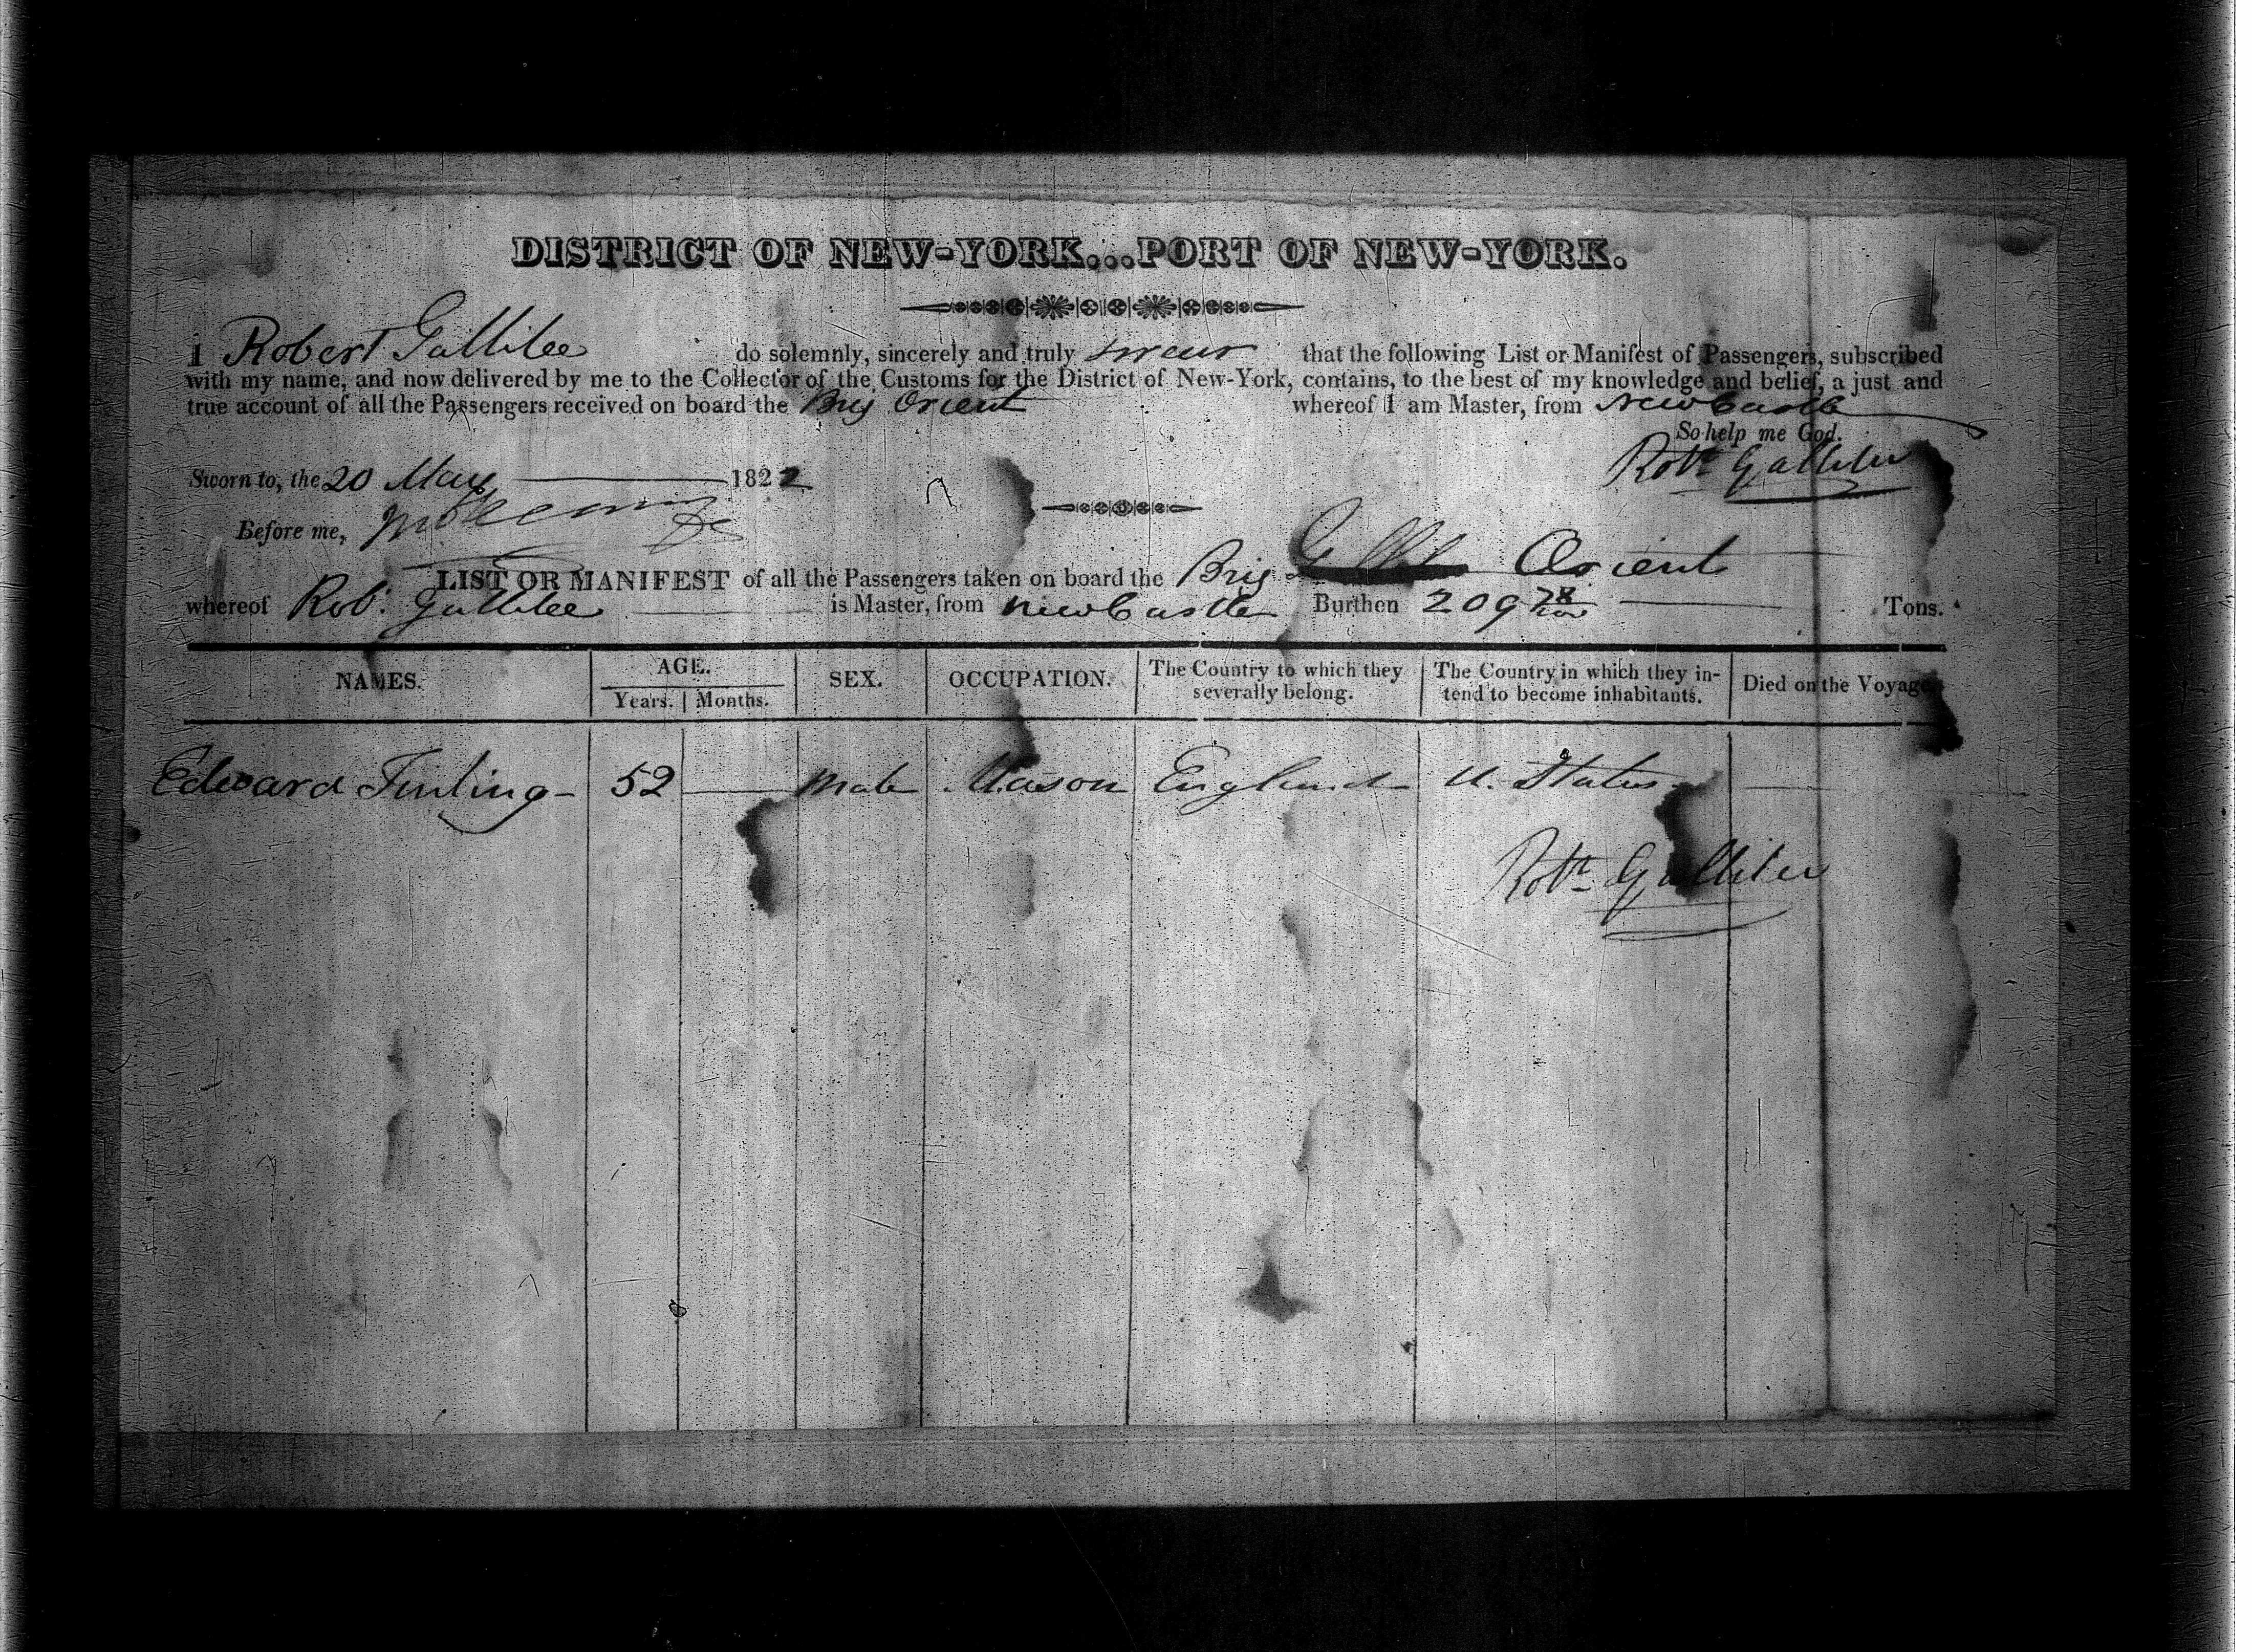 DISTRICT OF NEW-YORK...PORT OF NEW-YORK.
I Robert Gallilee do solemnly, sincerely and truly swear that the following List or Manifest of Passengers, subscribed
with my name, and now delivered by me to the Collector of the Customs for the District of New-York, contains, to the best of my knowledge and belief, a just and
true account of all the Passengers received on board the Brig Orient whereof I am Master, from NewCastle
So help me God.
Robt Gallilee
Sworn to, the 20 May 1822
Before me,
LIST OR MANIFEST of all the Passengers taken on board the Brig Orient
whereof Robt Gallilee is Master, from NewCastle Burthen 209 Tons.
NAMES. AGE. SEX. OCCUPATION. The Country to which they severally belong. The Country in which they in-tend to become inhabitants. Died on the Voyage
Years. Months.
Edward 52 Male Mason England U. States
Robt Gallilee